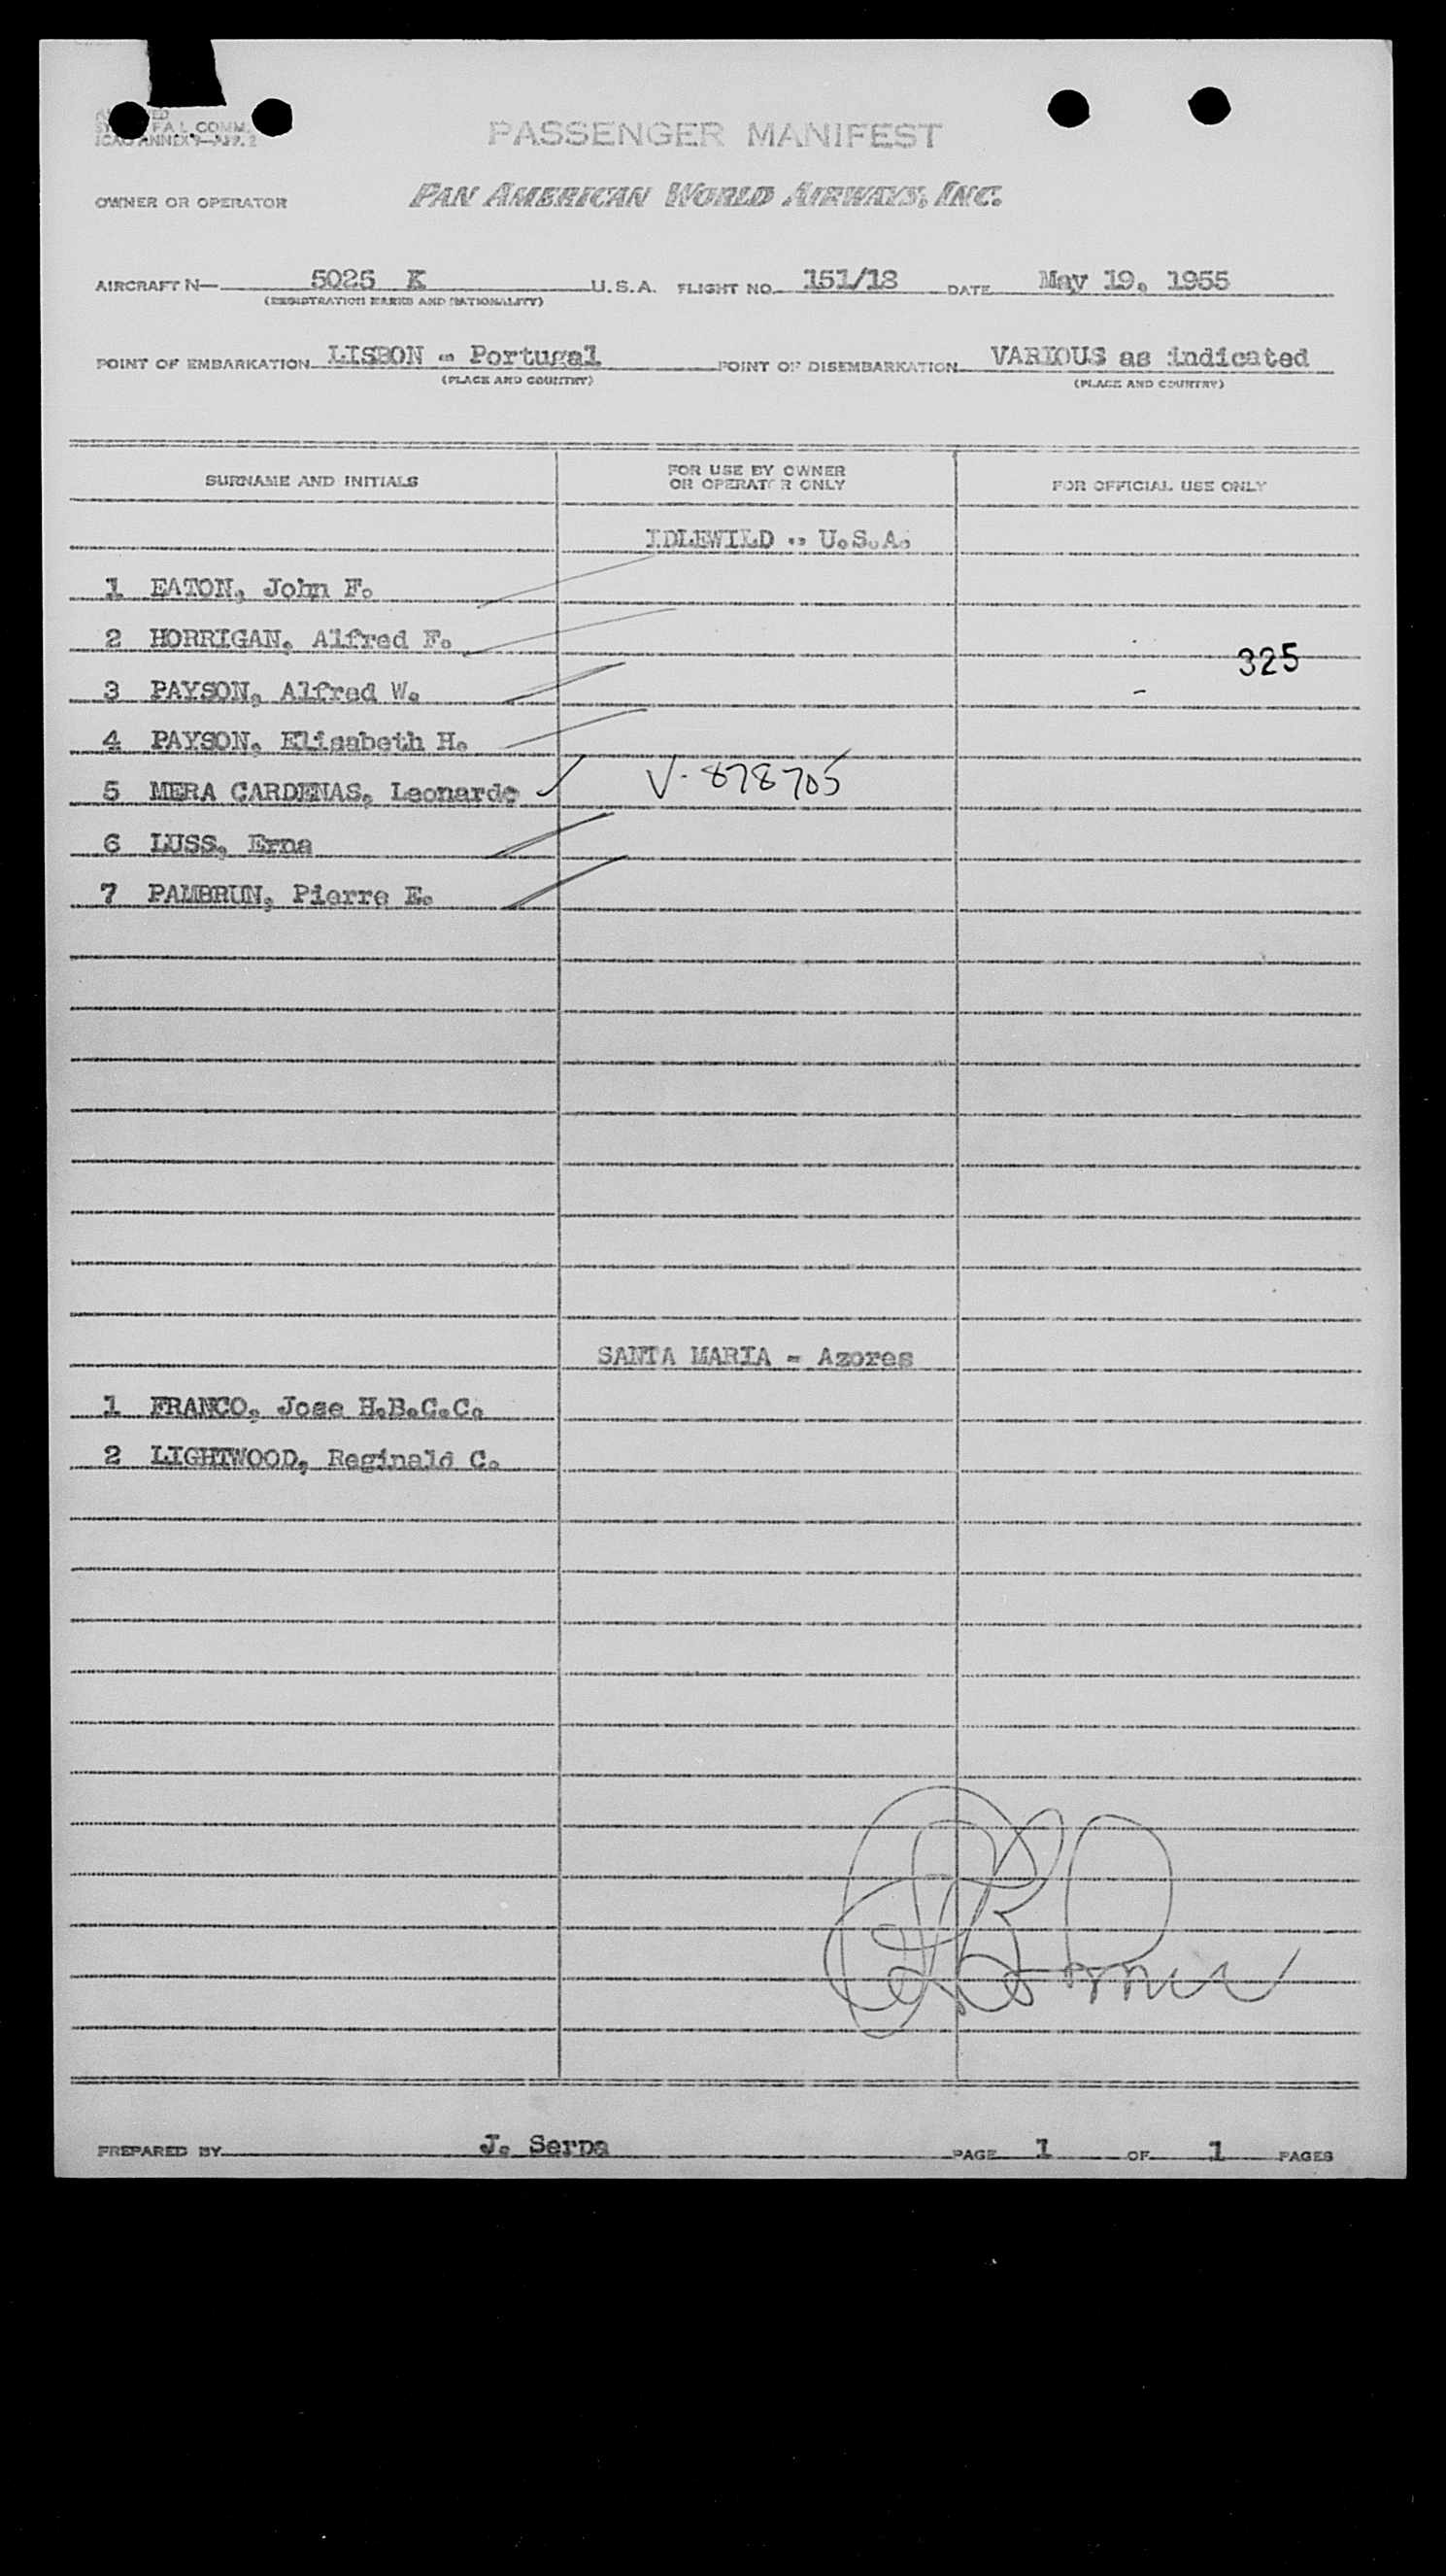 F.A.L. COMM.
ICAO ANNEX 9—APP. 2
PASSENGER MANIFEST
OWNER OR OPERATOR PAN AMERICAN WORLD AIRWAYS, INC.
AIRCRAFT N— 5025 K U.S.A. FLIGHT NO. 151/18 DATE May 19, 1955
(REGISTRATION MARKS AND NATIONALITY)
POINT OF EMBARKATION LISBON - Portugal POINT OF DISEMBARKATION VARIOUS as indicated
(PLACE AND COUNTRY) (PLACE AND COUNTRY)
SURNAME AND INITIALS FOR USE BY OWNER OR OPERATOR ONLY FOR OFFICIAL USE ONLY
IDLEWILD - U.S.A.
1 EATON, John F.
2 HORRIGAN, Alfred F.
325
3 PAYSON, Alfred W.
4 PAYSON, Elisabeth H.
5 MERA CARDENAS, Leonardo V-878705
6 LUSS, Erna
7 PAMBRUN, Pierre E.
SANTA MARIA - Azores
1 FRANCO, Jose H.B.C.C.
2 LIGHTWOOD, Reginald C.
PREPARED BY J. Serpa PAGE 1 OF 1 PAGES